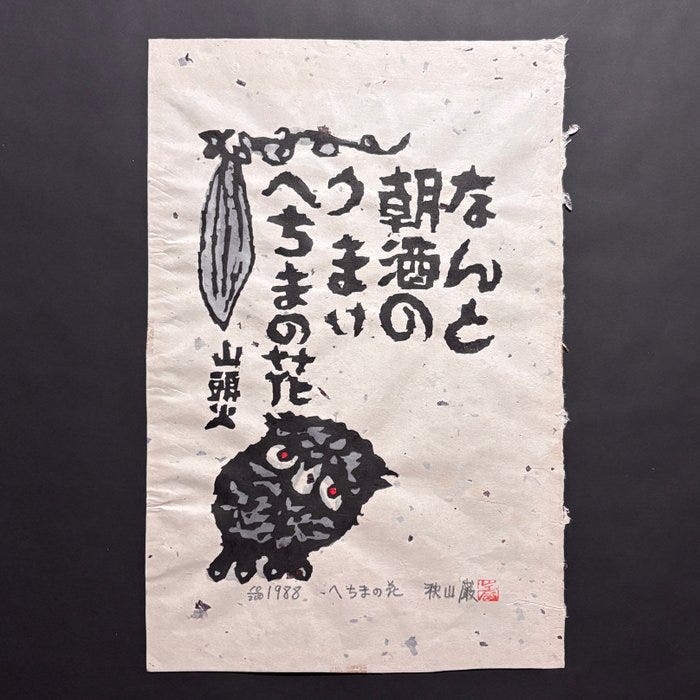 なんと
朝酒の
うまい
へちまの花
山頭火
1988 へちまの花 秋山巌